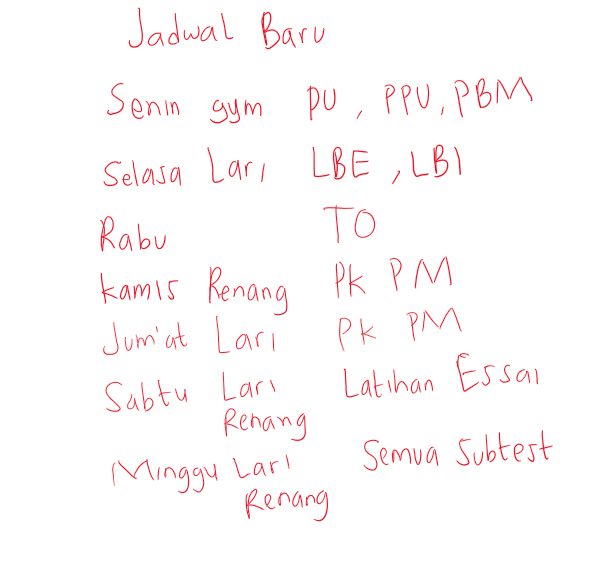 Jadwal Baru
Senin gym PU, PPU, PBM
Selasa Lari LBE, LBI
Rabu TO
Kamis Renang PK PM
Jum'at Lari PK PM
Sabtu Lari Latihan Essai
Renang
Minggu Lari Semua Subtest
Renang